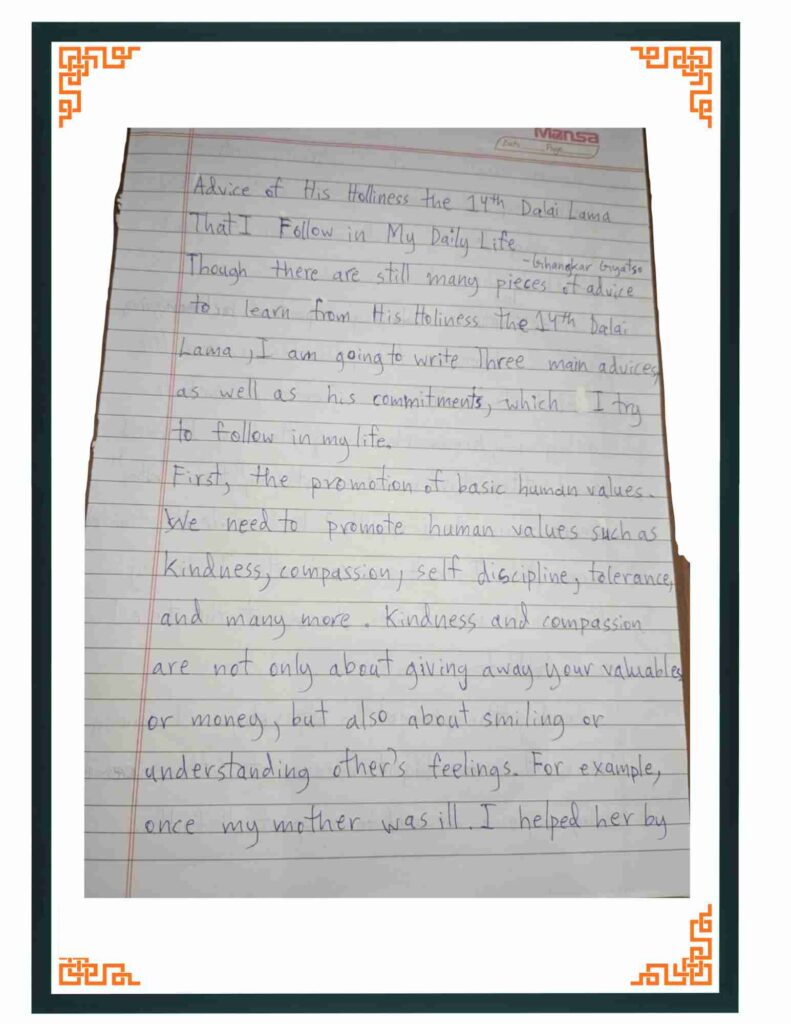 Mansa
Date
Page
Advice of His Holliness the 14th Dalai Lama
That I Follow in My Daily Life
-Ghangkar Gyatso
Though there are still many pieces of advice
to learn from His Holiness the 14th Dalai
Lama, I am going to write Three main advices,
as well as his commitments, which I try
to follow in my life.
First, the promotion of basic human values.
We need to promote human values such as
Kindness, compassion, self discipline, tolerance,
and many more. Kindness and compassion
are not only about giving away your valuables
or money, but also about smiling or
understanding other's feelings. For example,
once my mother was ill. I helped her by